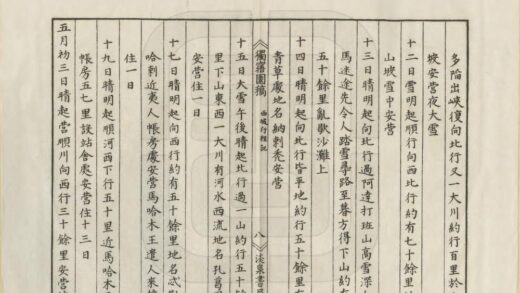 多險出峽復向北行又一大川約行百里於
坡安營夜大雪
十二日雪明起順行向西北行約有七十餘里
山坡雪中安營
十三日晴明起向北行過阿達打班山高雪深
馬迷途先令人踏雪尋路至暮方得下山約
五十餘里亂歇沙灘上
十四日晴明起向北行皆平地約行五十餘里有
青草處地名納剌禿安營
獨寤園稿 西域行程記 八 淡泉書屋
十五日大雪午後晴起北行過一山約行五十
里下山東西一大川有河水西流地名孔葛
安營住一日
十七日晴明起向西行約有五十餘里地名忒
哈剌近夷人帳房處安營馬哈木王遣人來
住一日
十九日晴明起順河西下行五十里近馬哈木
帳房五七里設站舍處安營住十三日
五月初三日晴起營順川向西行三十餘里安營